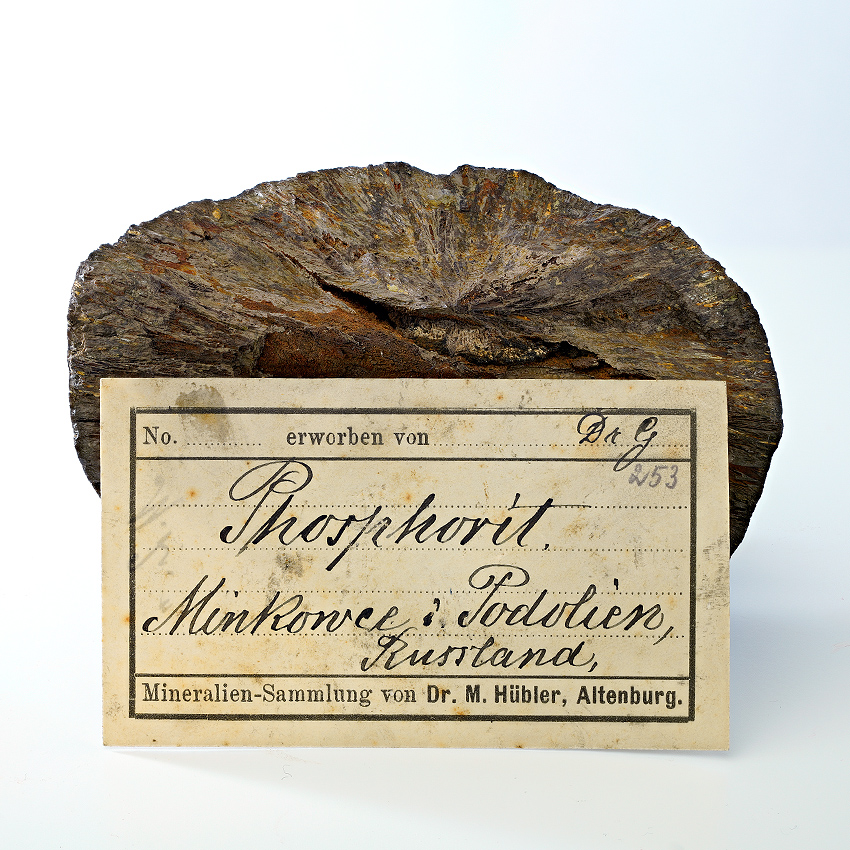 No. erworben von Dr G
253
Phosphorit.
Minkowce i. Podolien,
Russland,
Mineralien-Sammlung von Dr. M. Hübler, Altenburg.